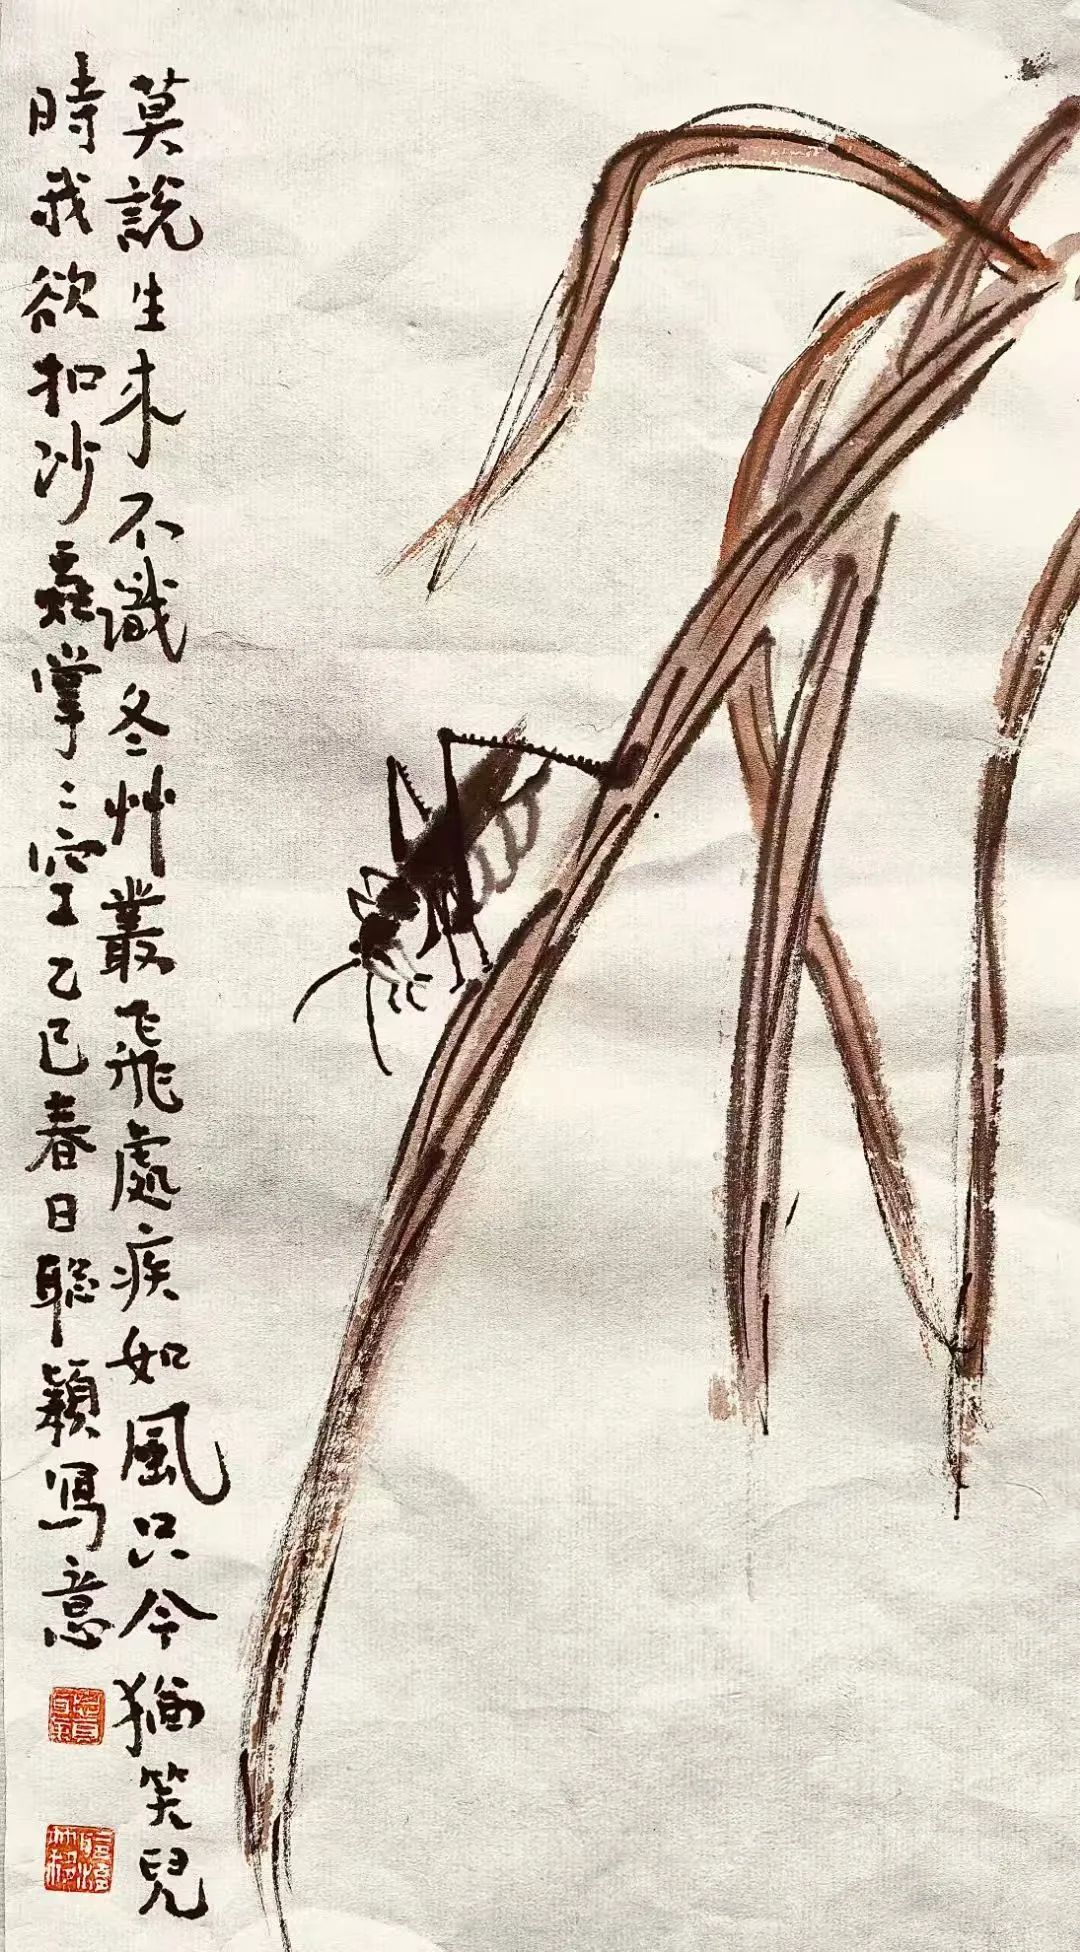 莫說生來不識冬艸叢飛處疾如風只今猶笑兒
時我欲扣沙蟲掌〻空乙巳春日聰穎寫意